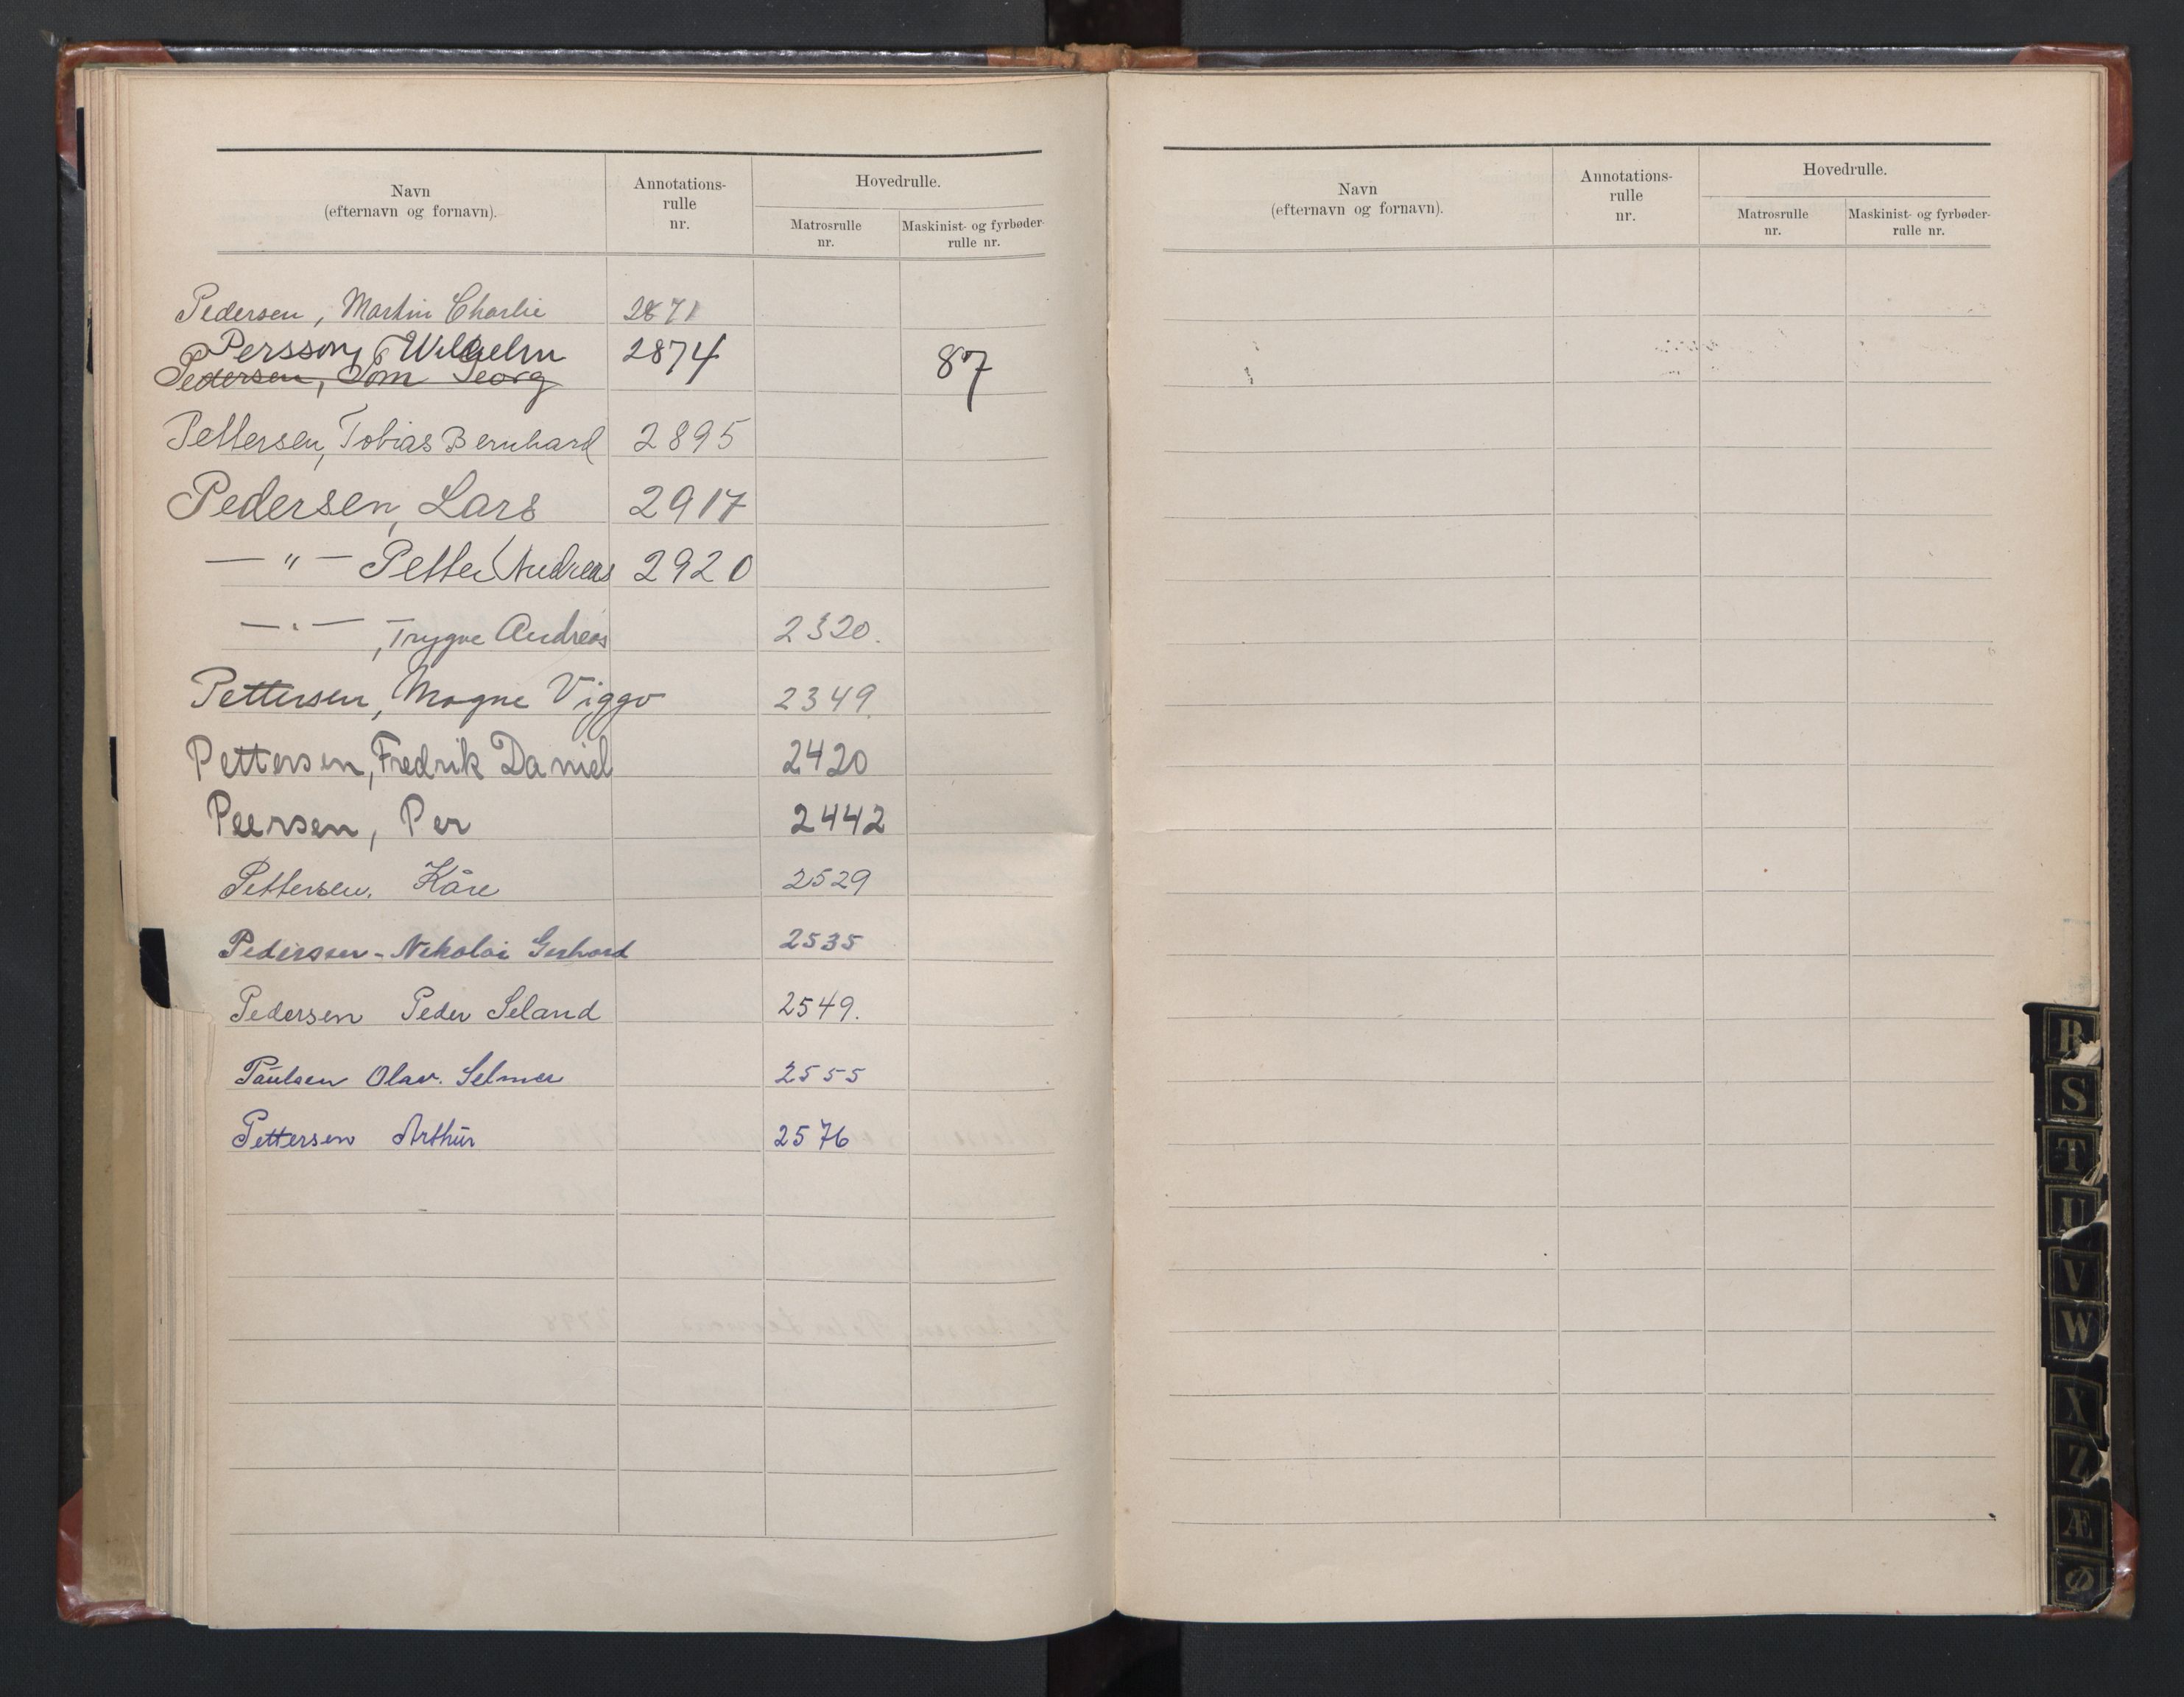 Navn (efternavn og fornavn). Annotations-rulle nr. Hovedrulle. Matrosrulle nr. Maskinist- og fyrbøder-rulle nr.
Pedersen, Martin Charlie 2871
Persson, Wilhelm 2874 87
Pedersen, Tom Georg
Pettersen, Tobias Bernhard 2895
Pedersen, Lars 2917
— " — Petter Andreas 2920
— " — , Trygve Andreas 2320.
Pettersen, Magne Viggo 2349.
Pettersen, Fredrik Daniel 2420
Peersen, Per 2442
Pettersen, Kåre 2529
Pedersen - Nikolai Gerhard 2535
Pedersen Peder Seland 2549.
Paulsen Olav. Selmer 2555
Pettersen Arthur 2576
Navn (efternavn og fornavn). Annotations-rulle nr. Hovedrulle. Matrosrulle nr. Maskinist- og fyrbøder-rulle nr.
R
S
T
U
V
W
X
Z
Æ
Ø